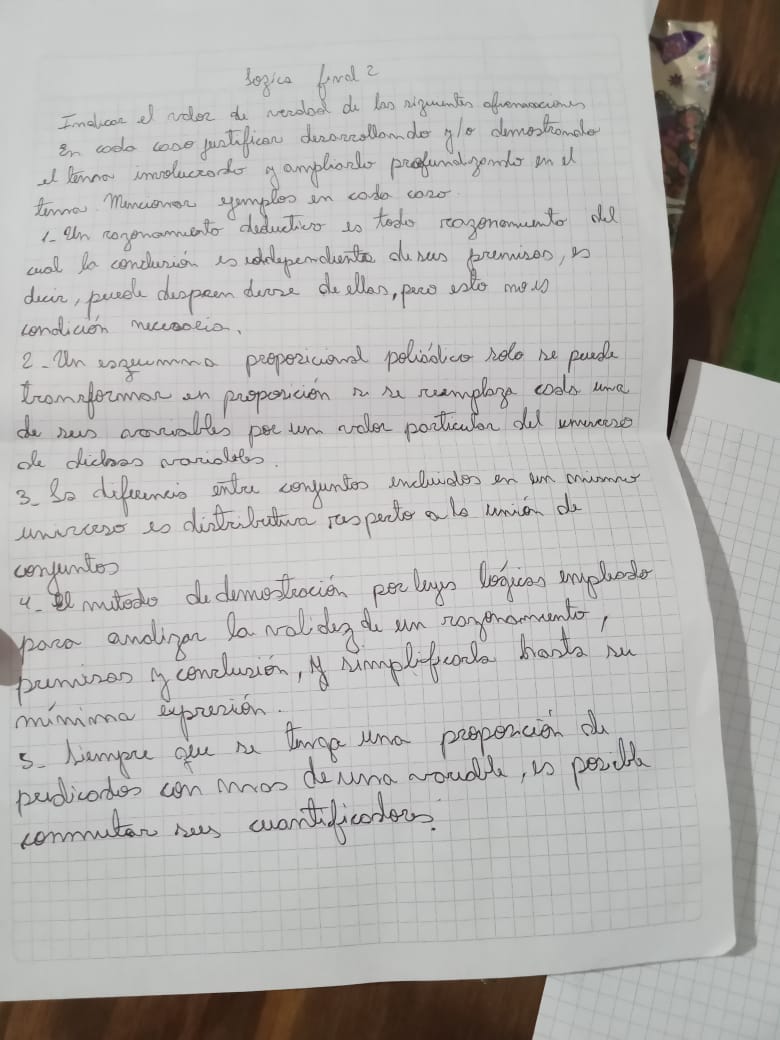 Logica final 2
Indicar el valor de verdad de las siguientes afirmaciones
En cada caso justificar desarrollando y/o demostrando
el tema involucrado y ampliarlo profundizando en el
tema. Mencionar ejemplos en cada caso.
1- Un razonamiento deductivo es todo razonamiento del
cual la conclusión es independiente de sus premisas, es
decir, puede desprenderse de ellas, pero esto no es
condición necesaria.
2- Un esquema proposicional poliádico solo se puede
transformar en proposición si se reemplaza cada una
de sus variables por un valor particular del universo
de dichas variables.
3- La diferencia entre conjuntos incluidos en un mismo
universo es distributiva respecto a la unión de
conjuntos
4- El metodo de demostración por leyes lógicas empleado
para analizar la validez de un razonamiento,
premisas y conclusión, y simplificarla hasta su
mínima expresión.
5- Siempre que se tenga una proposición de
predicados con mas de una variable, es posible
conmutar sus cuantificadores.